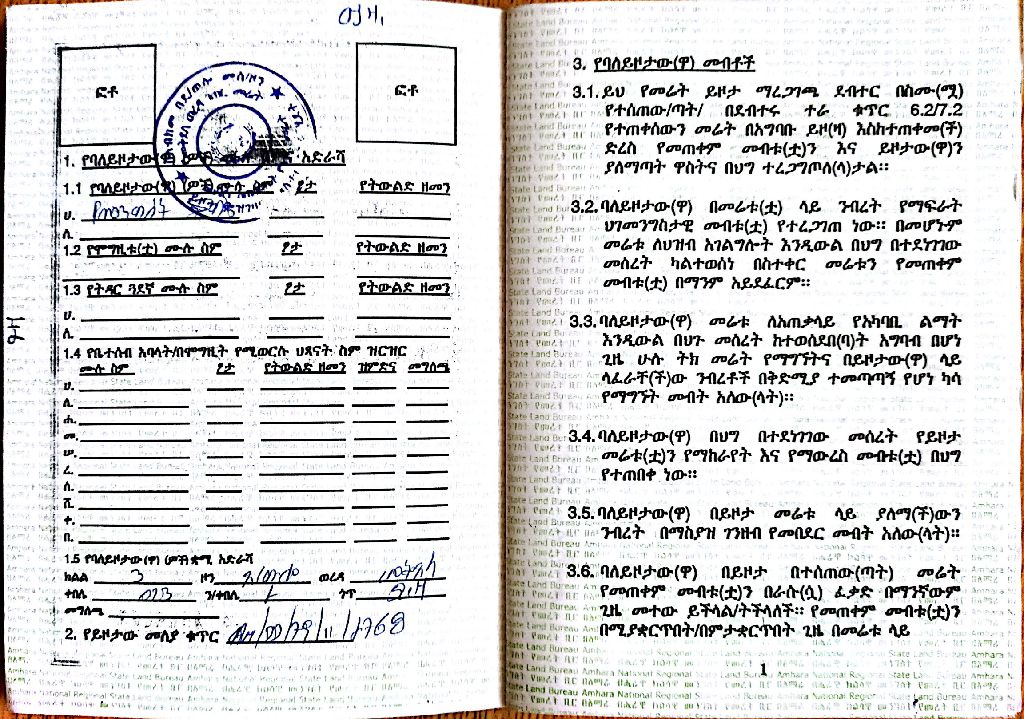 ፎቶ
ፎቶ
1. የባለይዞታው(ዋ) ሙሉ ስምና አድራሻ
1.1 የባለይዞታው(ዋ) ሙሉ ስም ፆታ የትውልድ ዘመን
ሀ.
ለ.
1.2 የሞግዚቱ(ቷ) ሙሉ ስም ፆታ የትውልድ ዘመን
1.3 የትዳር ጓደኛ ሙሉ ስም ፆታ የትውልድ ዘመን
ሀ.
ለ.
1.4 የቤተሰብ አባላት/በሞግዚት የሚወርሱ ህጻናት ስም ዝርዝር
ሙሉ ስም ፆታ የትውልድ ዘመን ዝምድና መግለጫ
ሀ.
ለ.
ሐ.
መ.
ሠ.
ረ.
ሰ.
ሸ.
ቀ.
በ.
1.5 የባለይዞታው(ዋ) መኖሪያ አድራሻ
ክልል 3 ዞን ወረዳ
ቀበሌ ን/ቀበሌ ጎጥ
መግለጫ
2. የይዞታው መለያ ቁጥር
3. የባለይዞታው(ዋ) መብቶች
3.1. ይህ የመሬት ይዞታ ማረጋገጫ ደብተር በስሙ(ሟ)
የተሰጠው/ጣት/ በደብተሩ ተራ ቁጥር 6.2/7.2
የተጠቀሰውን መሬት በአግባቡ ይዞ(ዛ) እስከተጠቀመ(ች)
ድረስ የመጠቀም መብቱ(ቷ)ን እና ይዞታው(ዋ)ን
ያለማጣት ዋስትና በህግ ተረጋግጦለ(ላ)ታል።
3.2. ባለይዞታው(ዋ) በመሬቱ(ቷ) ላይ ንብረት የማፍራት
ህገመንግስታዊ መብቱ(ቷ) የተረጋገጠ ነው። በመሆኑም
መሬቱ ለህዝብ አገልግሎት እንዲውል በህግ በተደነገገው
መሰረት ካልተወሰነ በስተቀር መሬቱን የመጠቀም
መብቱ(ቷ) በማንም አይደፈርም።
3.3. ባለይዞታው(ዋ) መሬቱ ለአጠቃላይ የአካባቢ ልማት
እንዲውል በህጉ መሰረት ከተወሰደበ(ባ)ት አግባብ በሆነ
ጊዜ ሁሉ ትክ መሬት የማግኘትና በይዞታው(ዋ) ላይ
ላፈራቸ(ች)ው ንብረቶች በቅድሚያ ተመጣጣኝ የሆነ ካሳ
የማግኘት መብት አለው(ላት)።
3.4. ባለይዞታው(ዋ) በህግ በተደነገገው መሰረት የይዞታ
መሬቱ(ቷ)ን የማከራየት እና የማውረስ መብቱ(ቷ) በህግ
የተጠበቀ ነው።
3.5. ባለይዞታው(ዋ) በይዞታ መሬቱ ላይ ያለማ(ች)ውን
ንብረት በማስያዝ ገንዘብ የመበደር መብት አለው(ላት)።
3.6. ባለይዞታው(ዋ) በይዞታ በተሰጠው(ጣት) መሬት
የመጠቀም መብቱ(ቷ)ን በራሱ(ሷ) ፈቃድ በማንኛውም
ጊዜ መተው ይችላል/ትችላለች። የመጠቀም መብቱ(ቷ)ን
በሚያቋርጥበት/በምታቋርጥበት ጊዜ በመሬቱ ላይ
1